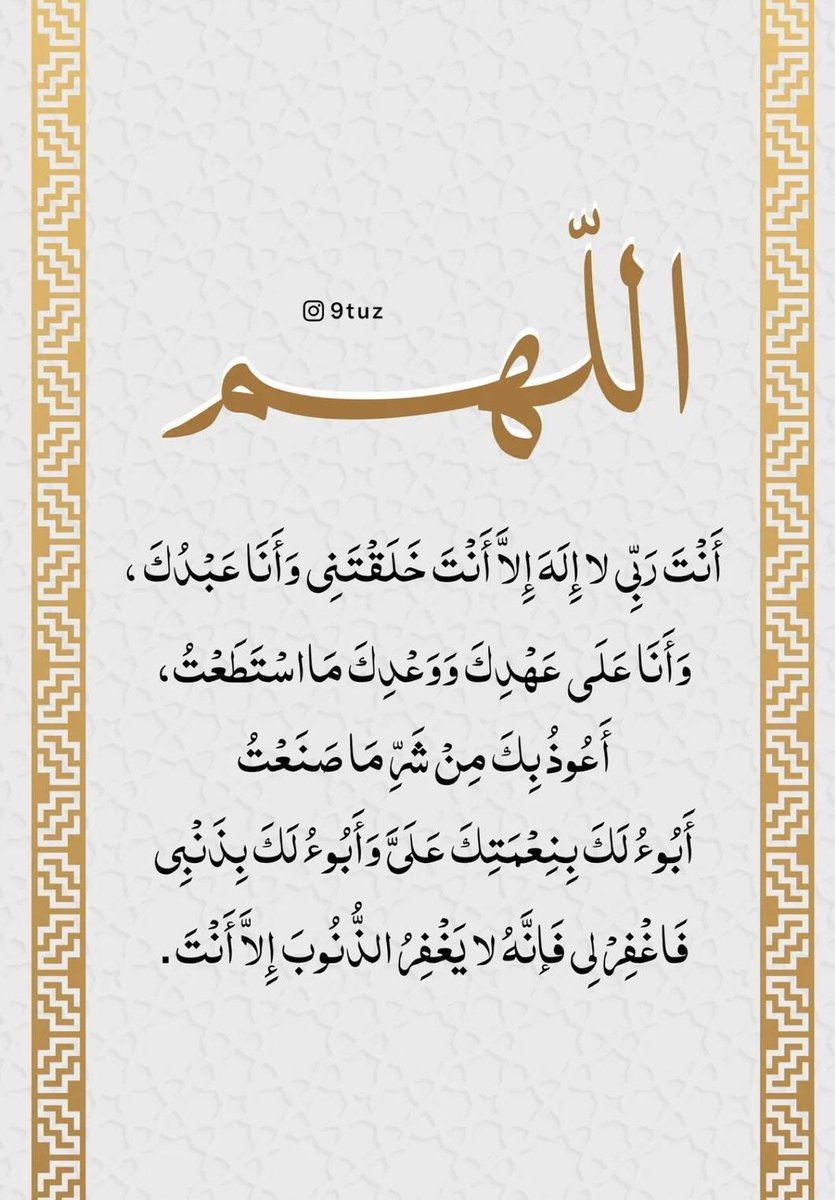 اللّهم
9tuz
أَنْتَ رَبِّي لا إِلَهَ إِلاَّ أَنْتَ خَلَقْتَنِي وَأَنَا عَبْدُكَ ،
وَأَنَا عَلَى عَهْدِكَ وَوَعْدِكَ مَا اسْتَطَعْتُ،
أَعُوذُ بِكَ مِنْ شَرِّ مَا صَنَعْتُ
أَبُوءُ لَكَ بِنِعْمَتِكَ عَلَيَّ وَأَبُوءُ لَكَ بِذَنْبِي
فَاغْفِرْ لِي فَإِنَّهُ لا يَغْفِرُ الذُّنُوبَ إِلاَّ أَنْتَ .